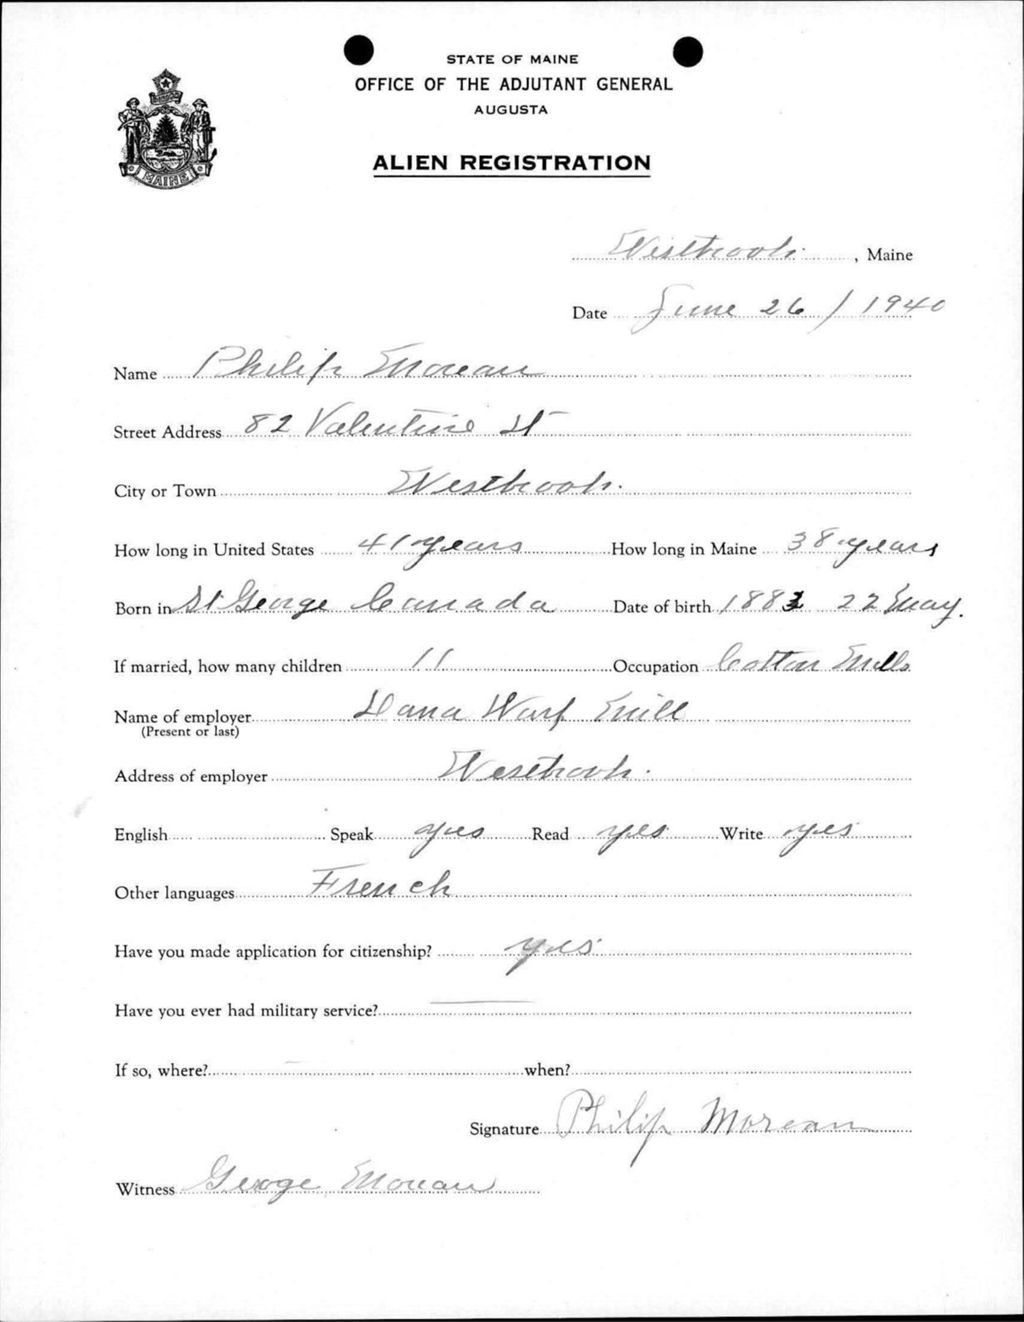 STATE OF MAINE
OFFICE OF THE ADJUTANT GENERAL
AUGUSTA
MAINE
ALIEN REGISTRATION
Westbrook, Maine
Date June 26 / 1940
Name Philip Moreau
Street Address 82 Valentine St
City or Town Westbrook.
How long in United States 41 years How long in Maine 38 years
Born in St George Canada Date of birth 1883 22 May.
If married, how many children 11 Occupation Cotton Mills
Name of employer Dana Warp Mill
(Present or last)
Address of employer Westbrook.
English Speak yes Read yes Write yes
Other languages French
Have you made application for citizenship? yes
Have you ever had military service?
If so, where? when?
Signature Philip Moreau
Witness George Moreau